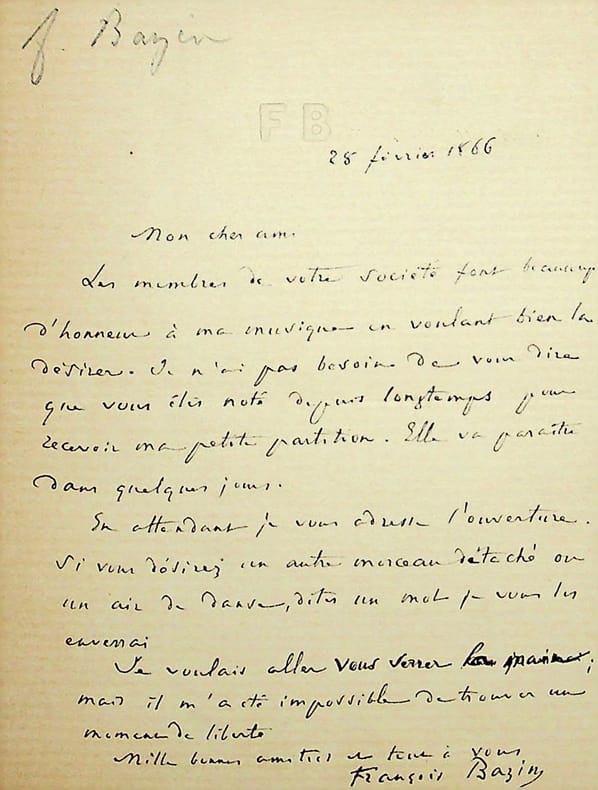 f. Bazin
FB
28 février 1866
Mon cher ami
Les membres de votre société font beaucoup
d'honneur à ma musique en voulant bien la
désirer. Je n'ai pas besoin de vous dire
que vous êtes noté depuis longtemps pour
recevoir ma petite partition. Elle va paraître
dans quelques jours.
En attendant je vous adresse l'ouverture.
Si vous désirez un autre morceau détaché ou
un air de danse, dites un mot je vous les
enverrai
Je voulais aller vous serrer la main;
mais il m'a été impossible de trouver un
moment de liberté
Mille bonnes amitiés et tout à vous
François Bazin